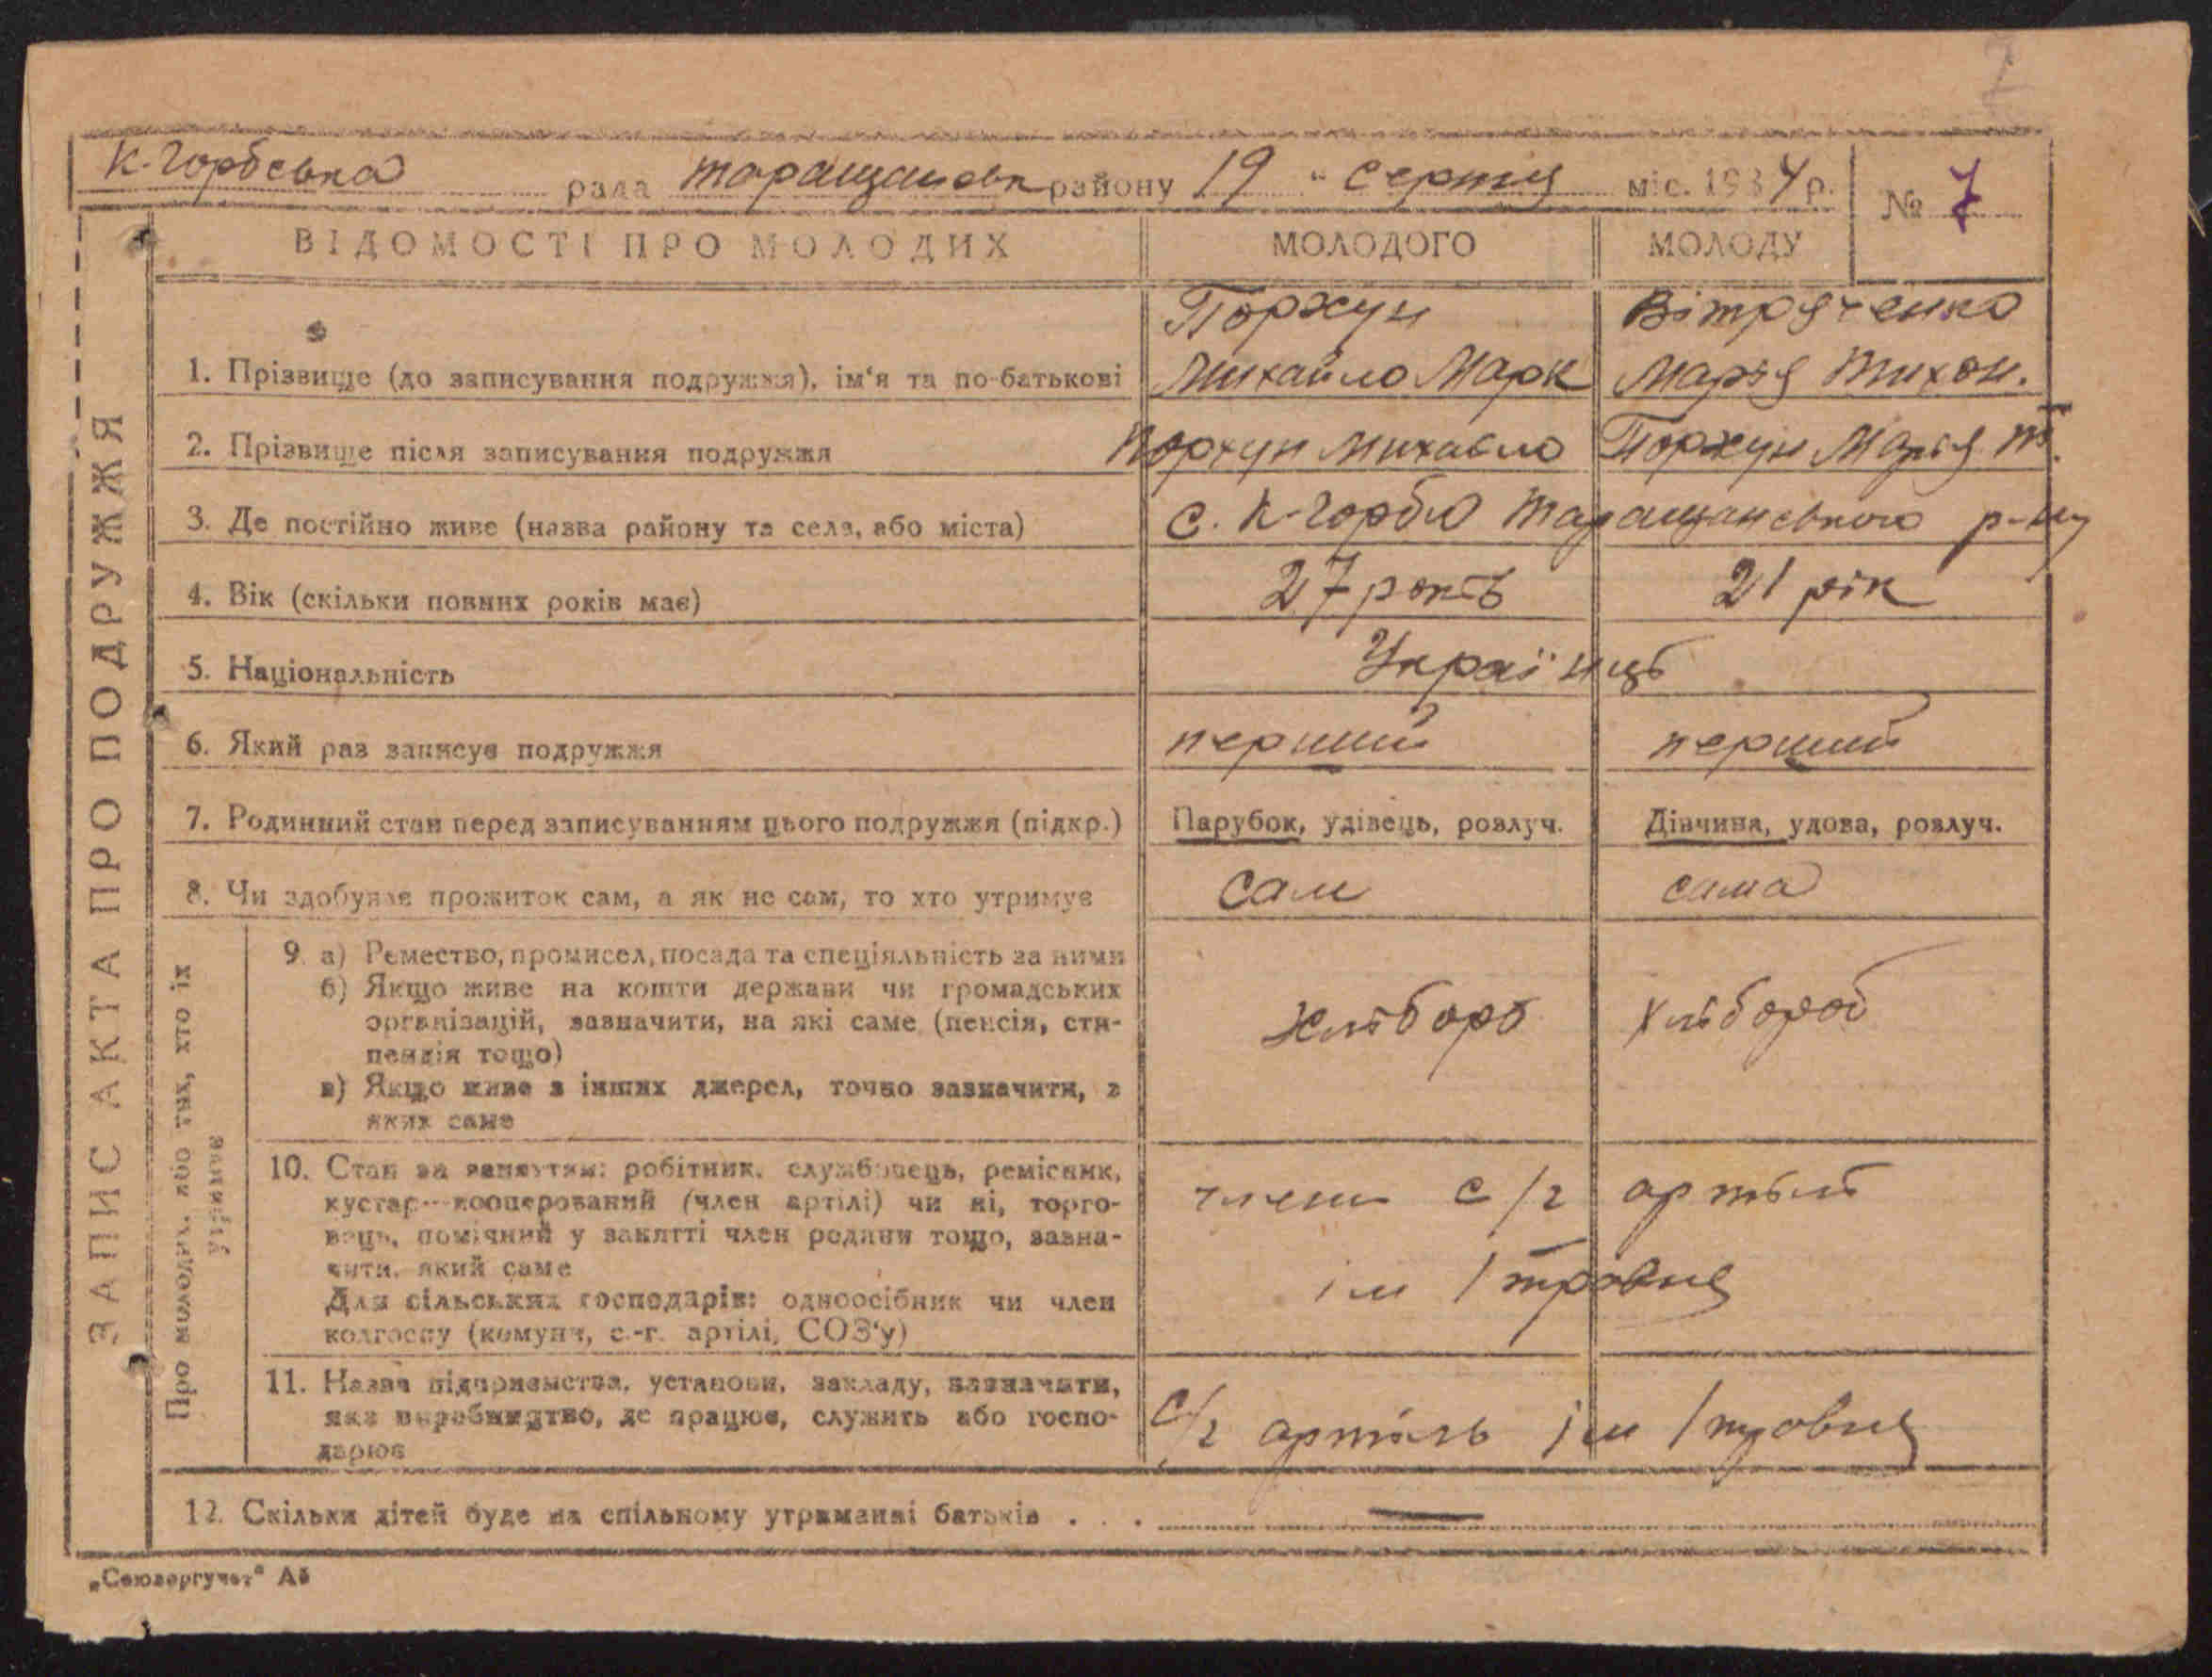 К-Горбська рада таращанськ району 19 " серпня міс. 1934 р. № 7
ВІДОМОСТІ ПРО МОЛОДИХ МОЛОДОГО МОЛОДУ
ЗАПИС АКТА ПРО ПОДРУЖЖЯ
Вітряченко
1. Прізвище (до записування подружжя), ім'я та по-батькові Михайло Марк Марія Тихон.
2. Прізвище після записування подружжя Михайло Марія Т.
3. Де постійно живе (назва району та села, або міста) с. К-Горби Таращанського р-ну
4. Вік (скільки повних років має) 27 років 21 рік
5. Національність Українці
6. Який раз записує подружжя перший перший
7. Родинний стан перед записуванням цього подружжя (підкр.) Парубок, удівець, розлуч. Дівчина, удова, розлуч.
8. Чи здобуває прожиток сам, а як не сам, то хто утримує сам сама
Про молодих, або тих, хто їх
утримує
9. а) Ремество, промисел, посада та спеціяльність за ними
б) Якщо живе на кошти держави чи громадських
організацій, зазначити, на які саме (пенсія, сти-
пендія тощо) хлібороб хлібороб
в) Якщо живе з інших джерел, точно зазначити, з
яких саме
10. Стан за заняттям: робітник, службовець, ремісник,
кустар—кооперований (член артілі) чи ні, торго- члени с/г артілі
вець, помічний у занятті член родини тощо, зазна-
чити, який саме ім 1 травня
Для сільських господарів: одноосібник чи член
колгоспу (комуни, с.-г. артілі, СОЗ'у)
11. Назва підприємства, установи, закладу, зазначити,
яке виробництво, де працює, служить або госпо- с/г артіль ім 1 травня
дарює
12. Скільки дітей буде на спільному утриманні батьків . . . —
„Союзоргучет“ А5